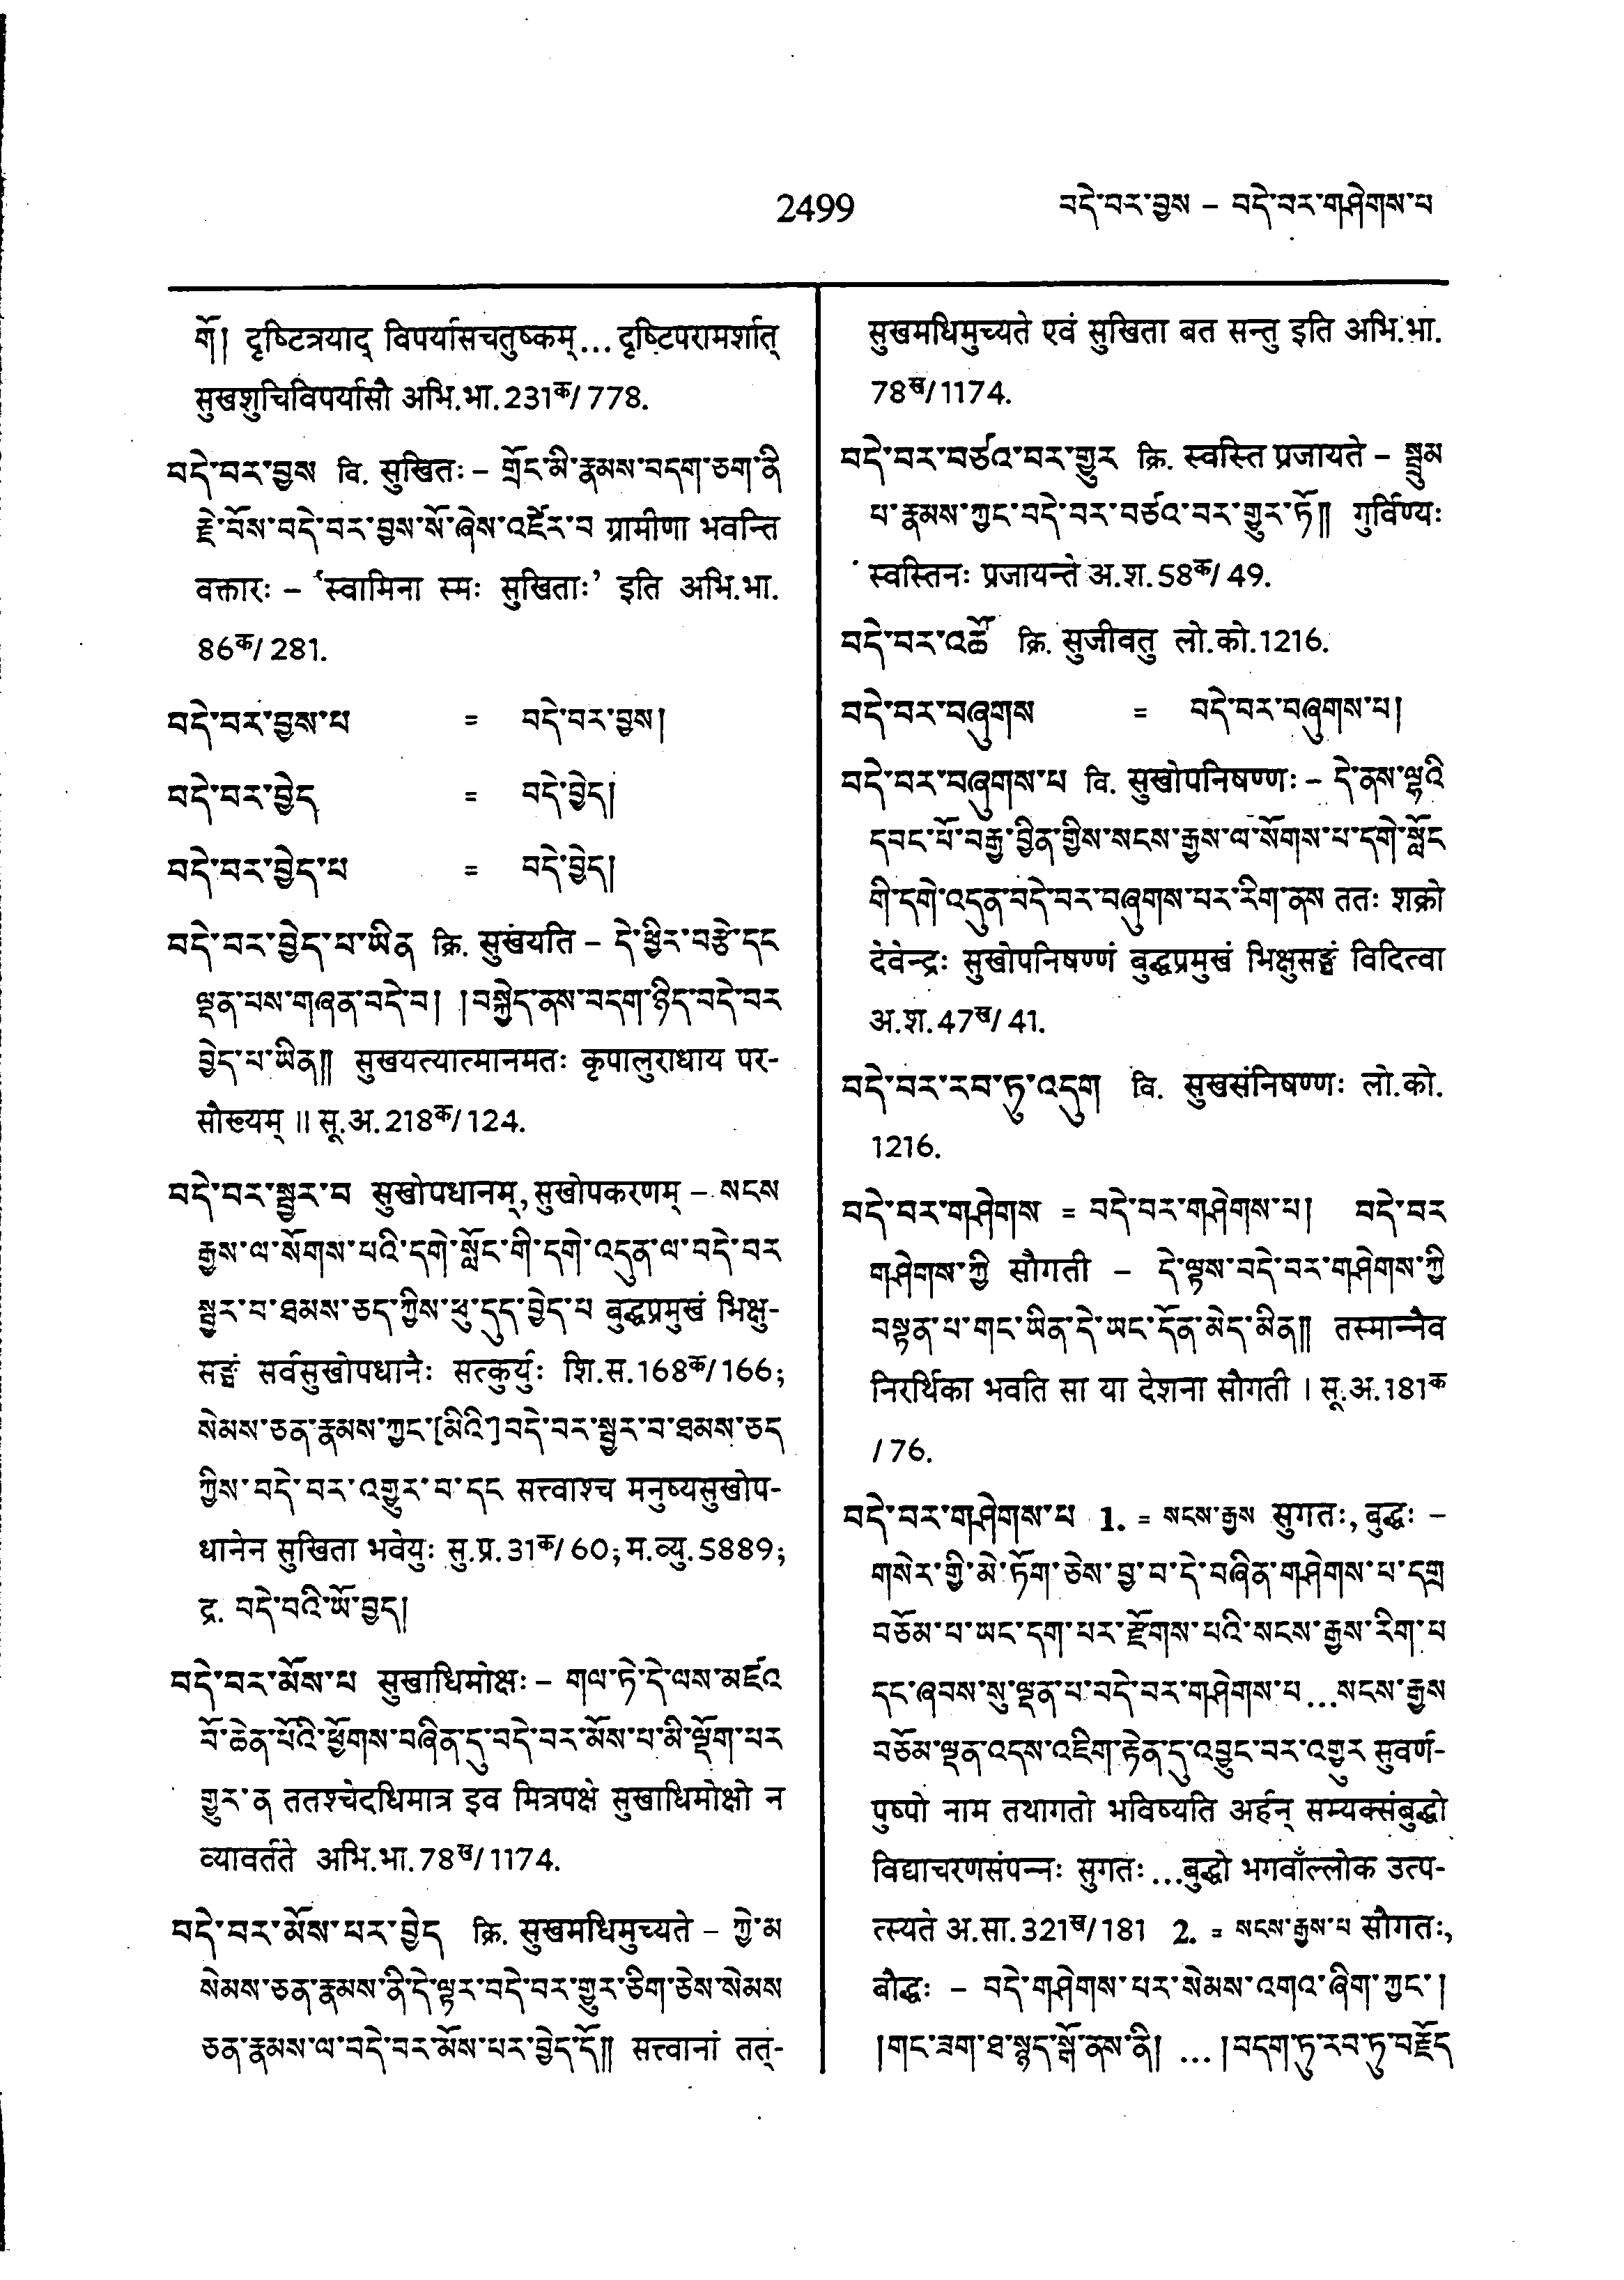 2499
བདེ་བར་བྱས – བདེ་བར་གཤེགས་པ
གོ། दृष्टित्रयाद् विपर्यासचतुष्कम्... दृष्टिपरामर्शात्
सुखशुचिविपर्यासौ अभि.भा.231क/778.
བདེ་བར་བྱས वि. सुखितः – གྲོང་མི་རྣམས་བདག་ཅག་ནི
རྗེ་བོས་བདེ་བར་བྱས་སོ་ཞེས་འཛེར་བ ग्रामीणा भवन्ति
वक्तारः – ‘स्वामिना स्मः सुखिताः’ इति अभि.भा.
86क/281.
བདེ་བར་བྱས་པ = བདེ་བར་བྱས།
བདེ་བར་བྱེད = བདེ་བྱེད།
བདེ་བར་བྱེད་པ = བདེ་བྱེད།
བདེ་བར་བྱེད་པ་ཡིན क्रि. सुखयति – དེ་ཕྱིར་བརྩེ་དང
ལྡན་པས་གཞན་བདེ་བ། །བསྐྱེད་ནས་བདག་ཉིད་བདེ་བར
བྱེད་པ་ཡིན༎ सुखयत्यात्मानमतः कृपालुराधाय पर-
सौख्यम् ॥ सू.अ.218क/124.
བདེ་བར་སྦྱར་བ सुखोपधानम्, सुखोपकरणम् – སངས
རྒྱས་ལ་སོགས་པའི་དགེ་སློང་གི་དགེ་འདུན་ལ་བདེ་བར
སྦྱར་བ་ཐམས་ཅད་ཀྱིས་ཕུ་དུད་བྱེད་པ बुद्धप्रमुखं भिक्षु-
सङ्घं सर्वसुखोपधानैः सत्कुर्युः शि.स.168क/166;
སེམས་ཅན་རྣམས་ཀྱང་[མིའི་]བདེ་བར་སྦྱར་བ་ཐམས་ཅད
ཀྱིས་བདེ་བར་འགྱུར་བ་དང सत्त्वाश्च मनुष्यसुखोप-
धानेन सुखिता भवेयुः सु.प्र.31क/60; म.व्यु.5889;
द्र. བདེ་བའི་ཡོ་བྱད།
བདེ་བར་མོས་པ सुखाधिमोक्षः – གལ་ཏེ་དེ་ལས་མཛའ
བོ་ཆེན་པོའི་ཕྱོགས་བཞིན་དུ་བདེ་བར་མོས་པ་མི་ལྡོག་པར
གྱུར་ན ततश्चेदधिमात्र इव मित्रपक्षे सुखाधिमोक्षो न
व्यावर्तते अभि.भा.78ख/1174.
བདེ་བར་མོས་པར་བྱེད क्रि. सुखमधिमुच्यते – ཀྱེ་མ
སེམས་ཅན་རྣམས་ནི་དེ་ལྟར་བདེ་བར་གྱུར་ཅིག་ཅེས་སེམས
ཅན་རྣམས་ལ་བདེ་བར་མོས་པར་བྱེད་དོ༎ सत्त्वानां तत्-
सुखमधिमुच्यते एवं सुखिता बत सन्तु इति अभि.भा.
78ख/1174.
བདེ་བར་བཙའ་བར་གྱུར क्रि. स्वस्ति प्रजायते – སྦྲུམ
པ་རྣམས་ཀྱང་བདེ་བར་བཙའ་བར་གྱུར་ཏོ༎ गुर्विण्यः
स्वस्तिनः प्रजायन्ते अ.श.58क/49.
བདེ་བར་འཚོ क्रि. सुजीवतु लो.को.1216.
བདེ་བར་བཞུགས = བདེ་བར་བཞུགས་པ།
བདེ་བར་བཞུགས་པ वि. सुखोपनिषण्णः – དེ་ནས་ལྷའི
དབང་པོ་བརྒྱ་བྱིན་གྱིས་སངས་རྒྱས་ལ་སོགས་པ་དགེ་སློང
གི་དགེ་འདུན་བདེ་བར་བཞུགས་པར་རིག་ནས ततः शक्रो
देवेन्द्रः सुखोपनिषण्णं बुद्धप्रमुखं भिक्षुसङ्घं विदित्वा
अ.श.47ख/41.
བདེ་བར་རབ་ཏུ་འདུག वि. सुखसंनिषण्णः लो.को.
1216.
བདེ་བར་གཤེགས = བདེ་བར་གཤེགས་པ། བདེ་བར
གཤེགས་ཀྱི सौगती – དེ་ལྟས་བདེ་བར་གཤེགས་ཀྱི
བསྟན་པ་གང་ཡིན་དེ་ཡང་དོན་མེད་མིན༎ तस्मान्नैव
निरर्थिका भवति सा या देशना सौगती । सू.अ.181क
/76.
བདེ་བར་གཤེགས་པ 1. = སངས་རྒྱས सुगतः, बुद्धः –
གསེར་གྱི་མེ་ཏོག་ཅེས་བྱ་བ་དེ་བཞིན་གཤེགས་པ་དགྲ
བཅོམ་པ་ཡང་དག་པར་རྫོགས་པའི་སངས་རྒྱས་རིག་པ
དང་ཞབས་སུ་ལྡན་པ་བདེ་བར་གཤེགས་པ...སངས་རྒྱས
བཅོམ་ལྡན་འདས་འཇིག་རྟེན་དུ་འབྱུང་བར་འགྱུར सुवर्ण-
पुष्पो नाम तथागतो भविष्यति अर्हन् सम्यक्संबुद्धो
विद्याचरणसंपन्नः सुगतः...बुद्धो भगवाँल्लोक उत्प-
त्स्यते अ.सा.321ख/181 2. = སངས་རྒྱས་པ सौगतः,
बौद्धः – བདེ་གཤེགས་པར་སེམས་འགའ་ཞིག་ཀྱང་།
།གང་ཟག་ཐ་སྙད་སྒོ་ནས་ནི། ... །བདག་ཏུ་རབ་ཏུ་བརྗོད